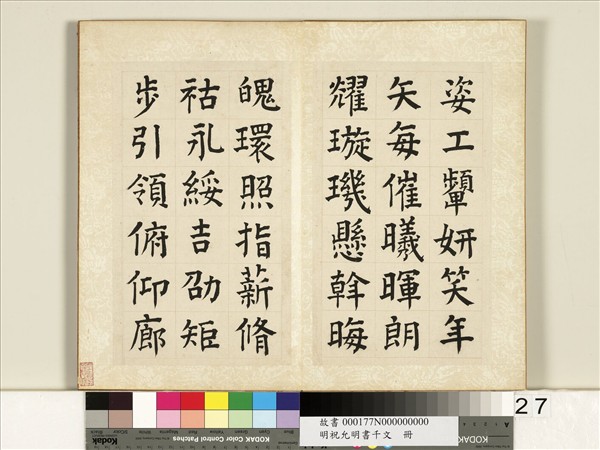 姿工顰妍笑年
矢每催曦暉朗
耀璇璣懸斡晦
魄環照指薪脩
祜永綏吉劭矩
步引領俯仰廊
27
故書 000177N000000000
明祝允明書千文 冊
Kodak
KODAK Color Control Patches
KODAK